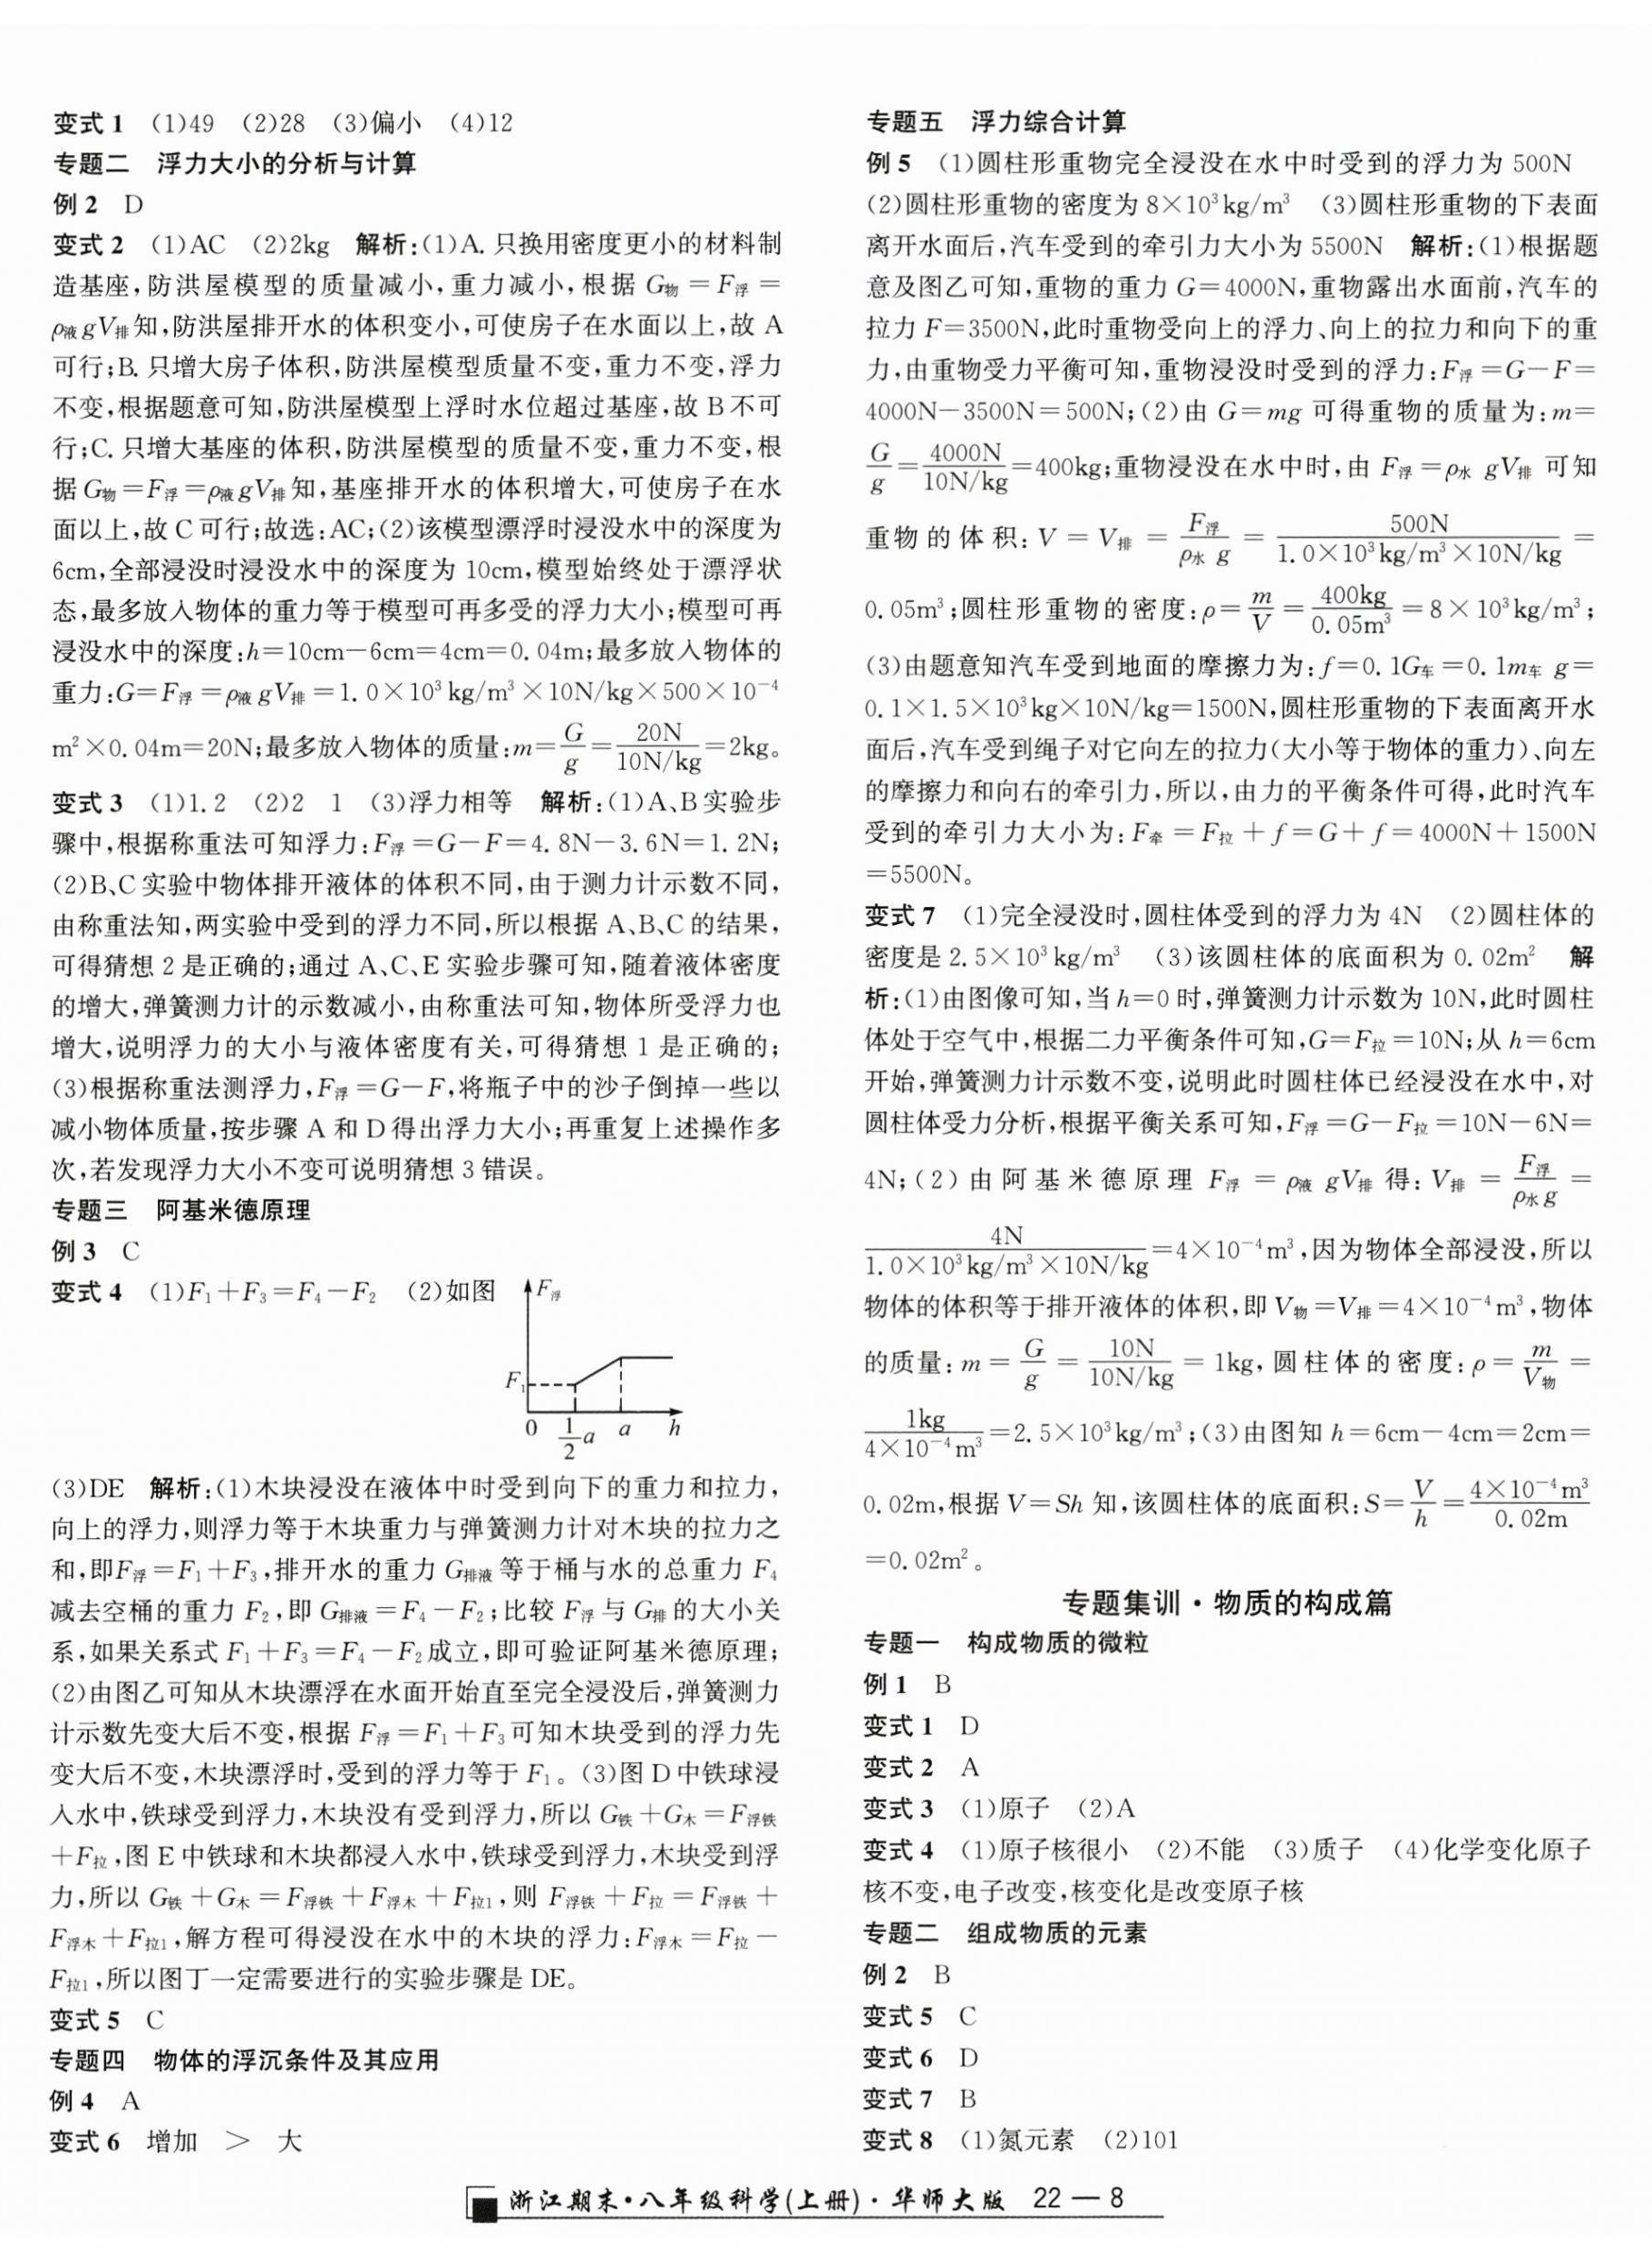 变式1 (1)49 (2)28 (3)偏小 (4)12
专题二 浮力大小的分析与计算
例2 D
变式2 (1)AC (2)2kg 解析:(1)A.只换用密度更小的材料制
造基座,防洪屋模型的质量减小,重力减小,根据 G物=F浮=
ρ液gV排知,防洪屋排开水的体积变小,可使房子在水面以上,故 A
可行;B.只增大房子体积,防洪屋模型质量不变,重力不变,浮力
不变,根据题意可知,防洪屋模型上浮时水位超过基座,故 B 不可
行;C.只增大基座的体积,防洪屋模型的质量不变,重力不变,根
据 G物=F浮=ρ液gV排知,基座排开水的体积增大,可使房子在水
面以上,故 C 可行;故选:AC;(2)该模型漂浮时浸没水中的深度为
6cm,全部浸没时浸没水中的深度为 10cm,模型始终处于漂浮状
态,最多放入物体的重力等于模型可再多受的浮力大小;模型可再
浸没水中的深度:h=10cm-6cm=4cm=0.04m;最多放入物体的
重力:G=F浮=ρ液gV排=1.0×10³kg/m³×10N/kg×500×10⁻⁴
m²×0.04m=20N;最多放入物体的质量:m=G/g=20N/10N/kg=2kg。
变式3 (1)1.2 (2)2 1 (3)浮力相等 解析:(1)A、B实验步
骤中,根据称重法可知浮力:F浮=G-F=4.8N-3.6N=1.2N;
(2)B、C实验中物体排开液体的体积不同,由于测力计示数不同,
由称重法知,两实验中受到的浮力不同,所以根据 A、B、C 的结果,
可得猜想 2 是正确的;通过 A、C、E 实验步骤可知,随着液体密度
的增大,弹簧测力计的示数减小,由称重法可知,物体所受浮力也
增大,说明浮力的大小与液体密度有关,可得猜想 1 是正确的;
(3)根据称重法测浮力,F浮=G-F,将瓶子中的沙子倒掉一些以
减小物体质量,按步骤 A 和 D 得出浮力大小;再重复上述操作多
次,若发现浮力大小不变可说明猜想 3 错误。
专题三 阿基米德原理
例3 C
变式4 (1)F₁+F₃=F₄-F₂ (2)如图
F浮
F₁
0 1/2a a h
(3)DE 解析:(1)木块浸没在液体中时受到向下的重力和拉力,
向上的浮力,则浮力等于木块重力与弹簧测力计对木块的拉力之
和,即F浮=F₁+F₃,排开水的重力 G排液等于桶与水的总重力 F₄
减去空桶的重力 F₂,即 G排液=F₄-F₂;比较 F浮与 G排的大小关
系,如果关系式 F₁+F₃=F₄-F₂成立,即可验证阿基米德原理;
(2)由图乙可知从木块漂浮在水面开始直至完全浸没后,弹簧测力
计示数先变大后不变,根据 F浮=F₁+F₃可知木块受到的浮力先
变大后不变,木块漂浮时,受到的浮力等于 F₁。(3)图 D 中铁球浸
入水中,铁球受到浮力,木块没有受到浮力,所以 G铁+G木=F浮铁
+F拉,图 E 中铁球和木块都浸入水中,铁球受到浮力,木块受到浮
力,所以 G铁+G木=F浮铁+F浮木+F拉1,则 F浮铁+F拉=F浮铁+
F浮木+F拉1,解方程可得浸没在水中的木块的浮力:F浮木=F拉-
F拉1,所以图丁一定需要进行的实验步骤是 DE。
变式5 C
专题四 物体的浮沉条件及其应用
例4 A
变式6 增加 > 大
专题五 浮力综合计算
例5 (1)圆柱形重物完全浸没在水中时受到的浮力为 500N
(2)圆柱形重物的密度为 8×10³kg/m³ (3)圆柱形重物的下表面
离开水面后,汽车受到的牵引力大小为 5500N 解析:(1)根据题
意及图乙可知,重物的重力 G=4000N,重物露出水面前,汽车的
拉力 F=3500N,此时重物受向上的浮力、向上的拉力和向下的重
力,由重物受力平衡可知,重物浸没时受到的浮力:F浮=G-F=
4000N-3500N=500N;(2)由 G=mg 可得重物的质量为:m=
G/g=4000N/10N/kg=400kg;重物浸没在水中时,由 F浮=ρ水gV排可知
重物的体积:V=V排=F浮/ρ水g=500N/1.0×10³kg/m³×10N/kg=
0.05m³;圆柱形重物的密度:ρ=m/V=400kg/0.05m³=8×10³kg/m³;
(3)由题意知汽车受到地面的摩擦力为:f=0.1G车=0.1m车g=
0.1×1.5×10³kg×10N/kg=1500N,圆柱形重物的下表面离开水
面后,汽车受到绳子对它向左的拉力(大小等于物体的重力)、向左
的摩擦力和向右的牵引力,所以,由力的平衡条件可得,此时汽车
受到的牵引力大小为:F牵=F拉+f=G+f=4000N+1500N
=5500N。
变式7 (1)完全浸没时,圆柱体受到的浮力为 4N (2)圆柱体的
密度是 2.5×10³kg/m³ (3)该圆柱体的底面积为 0.02m² 解
析:(1)由图像可知,当 h=0 时,弹簧测力计示数为 10N,此时圆柱
体处于空气中,根据二力平衡条件可知,G=F拉=10N;从 h=6cm
开始,弹簧测力计示数不变,说明此时圆柱体已经浸没在水中,对
圆柱体受力分析,根据平衡关系可知,F浮=G-F拉=10N-6N=
4N;(2)由阿基米德原理 F浮=ρ液gV排得:V排=F浮/ρ水g=
4N/1.0×10³kg/m³×10N/kg=4×10⁻⁴m³,因为物体全部浸没,所以
物体的体积等于排开液体的体积,即 V物=V排=4×10⁻⁴m³,物体
的质量:m=G/g=10N/10N/kg=1kg,圆柱体的密度:ρ=m/V物=
1kg/4×10⁻⁴m³=2.5×10³kg/m³;(3)由图知 h=6cm-4cm=2cm=
0.02m,根据 V=Sh 知,该圆柱体的底面积:S=V/h=4×10⁻⁴m³/0.02m
=0.02m²。
专题集训·物质的构成篇
专题一 构成物质的微粒
例1 B
变式1 D
变式2 A
变式3 (1)原子 (2)A
变式4 (1)原子核很小 (2)不能 (3)质子 (4)化学变化原子
核不变,电子改变,核变化是改变原子核
专题二 组成物质的元素
例2 B
变式5 C
变式6 D
变式7 B
变式8 (1)氮元素 (2)101
浙江期末·八年级科学(上册)·华师大版 22—8